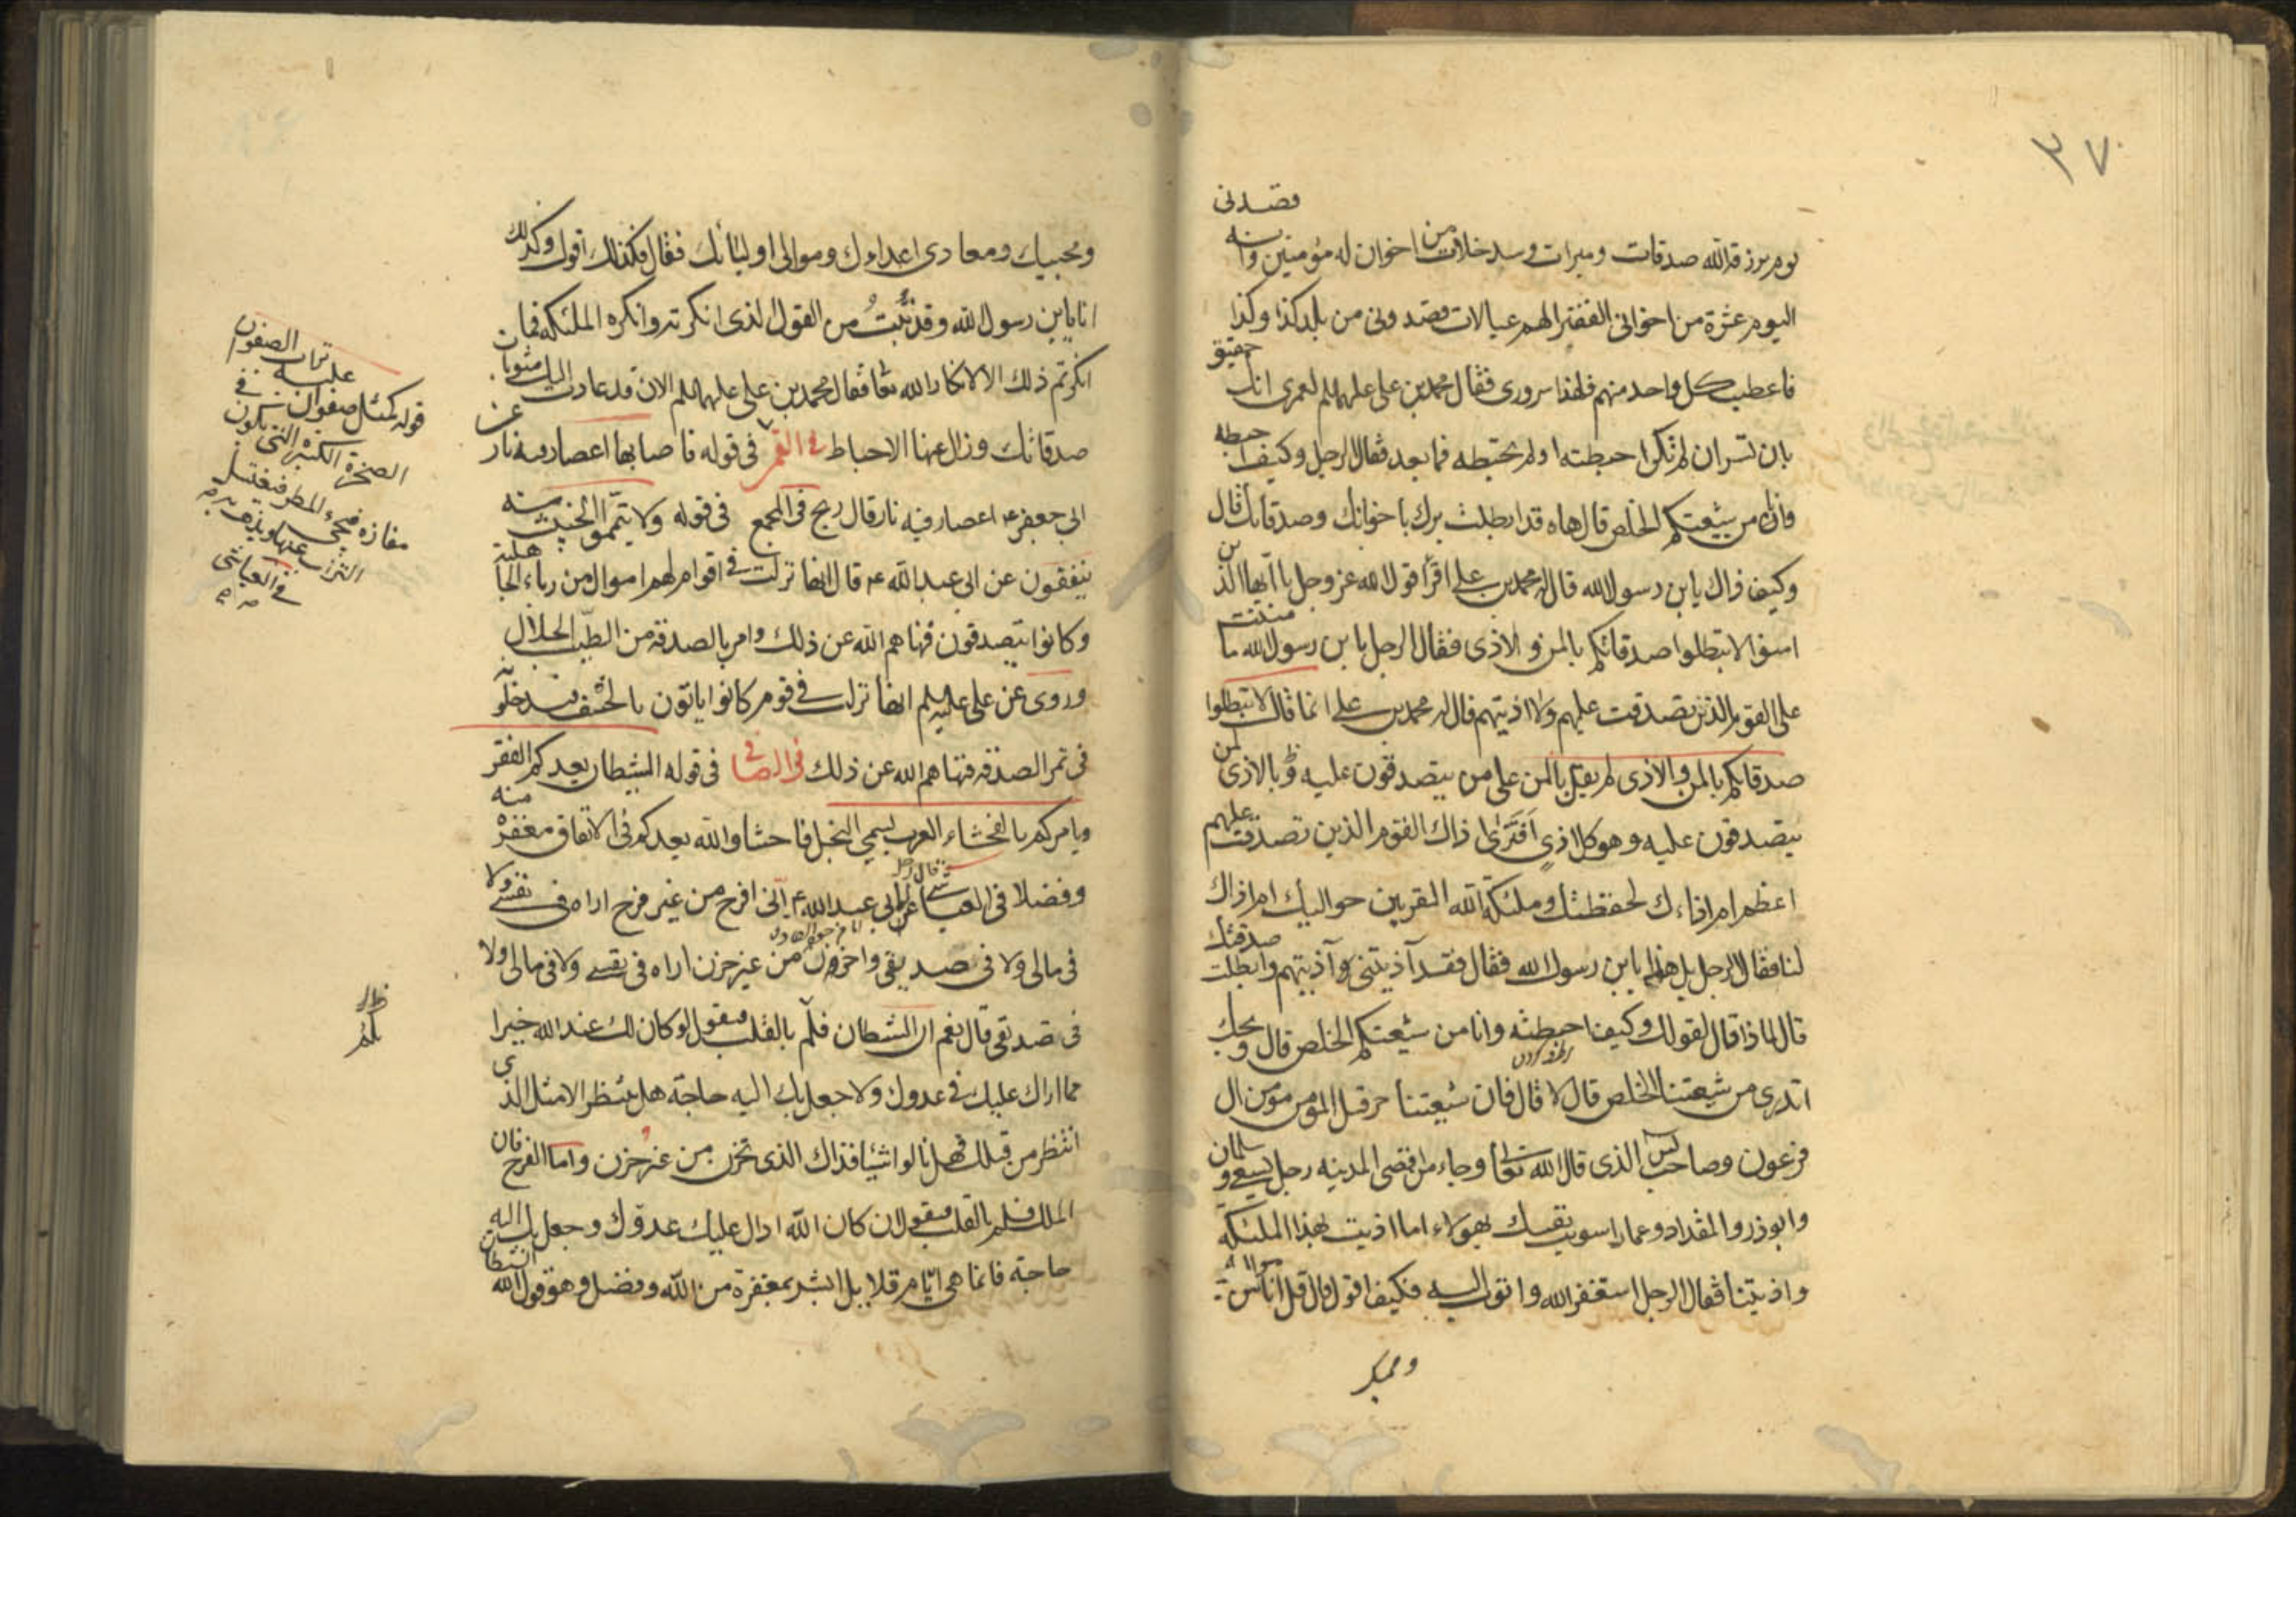 ٣٧
قصدنى
يوم يرزقه الله صدقات ومبرات وسد خلات من اخوان له مؤمنين وانه
اليوم عشرة من اخوانى الفقراء لهم عيالات قصدونى من بلد كذا وكذا
فاعطيت كل واحد منهم فلهذا سرورى فقال محمد بن على عليهما السلم لعمرى انك حقيق
بان تسر ان لم تكن احبطته اولم تحبطه فيما بعد فقال الرجل وكيف احبطه
وانا من شيعتكم الخلص قال هاه قد ابطلت برك باخوانك وصدقاتك قال
وكيف ذاك يابن رسول الله قال له محمد بن على اقرأ قول الله عز وجل يا ايها الذين
امنوا لا تبطلوا صدقاتكم بالمن والاذى فقال الرجل يابن رسول الله ما مننت
على القوم الذين تصدقت عليهم ولا اذيتهم قال له محمد بن على انما قال لا تبطلوا
صدقاتكم بالمن والاذى لم يقل بالمن على من يتصدقون عليه وبالاذى لمن
يتصدقون عليه وهو كل اذى افترى اذاك القوم الذين تصدقت عليهم
اعظم ام اذاءك لحفظتك وملئكة الله المقربين حواليك ام اذاك
لنا فقال الرجل بل هذا يابن رسول الله فقال فقد آذيتنى وآذيتهم وابطلت صدقتك
قال لماذا قال لقولك وكيف احبطته وانا من شيعتكم الخلص قال ويحك
اتدرى من شيعتنا الخلص قال لا قال فان شيعتنا حزقيل المؤمن مؤمن ال
فرعون وصاحب يس الذى قال الله تعا وجاء من اقصى المدينه رجل يسعى وسلمان
وابوذر والمقداد وعمار اسويت نفسك بهؤلاء اما اذيت بهذا الملئكه
واذيتنا فقال الرجل استغفر الله واتوب اليه فكيف اقول قال قل انا من مواليك
ومحبيك
ومحبيك ومعادى اعداءك وموالى اوليائك فقال فكذلك اقول وكذلك
انا يابن رسول الله وقد تبت من القول الذى انكرته وانكره الملئكه فما
انكرتم ذلك الا لانكار الله تعا فقال محمد بن على عليهما السلم الان قد عادت اليك مثوبات
صدقاتك وزال عنها الاحباط فى القمى فى قوله فاصابها اعصار فيه نار عن
ابى جعفر ع اعصار فيه نار قال ريح فى المجمع فى قوله ولا تيمموا الخبيث منه
ينفقون عن ابى عبد الله ع قال انها نزلت فى اقوام لهم اموال من رباء الجاهلية
وكانوا يتصدقون فنهاهم الله عن ذلك وامر بالصدقه من الطيب الحلال
وروى عن على عليه السلم انها نزلت فى قوم كانوا ياتون بالحشف فيدخلونه
فى تمر الصدقه فنهاهم الله عن ذلك فى الصافى فى قوله الشيطان يعدكم الفقر
ويامركم بالفحشاء العرب يسمى البخيل فاحشا والله يعدكم فى الانفاق مغفرة منه
وفضلا فى العياشى عن ابى عبد الله ع قال رجل انى افرح من غير فرح اراه فى نفسى ولا
فى مالى ولا فى صديقى واحزن من غير حزن اراه فى نفسى ولا فى مالى ولا
فى صديقى قال نعم ان الشيطان فلم بالقلب فيقول لو كان لك عند الله خيرا
ما اراك عليك فى عدوك ولا جعل بك اليه حاجة هل ينتظر الا مثل الذى
انتظر من قبلك فهل نالوا شيئا فذاك الذى تحزن من غير حزن واما الفرح فان
الملك فلم بالقلب فيقول ان كان الله ادال عليك عدوك وجعل بك اليه
حاجة فانما هى ايام قلايل ابشر بمغفرة من الله وفضل وهو قول الله الشيطان
تراب الصفوان
عليه
قوله كمثل صفوان فى
الصخرة الكبيرة التى تكون
مفازه فيجىء المطر فيغتسل
التراب عنها ويذهب به
فى العياشى
يلم